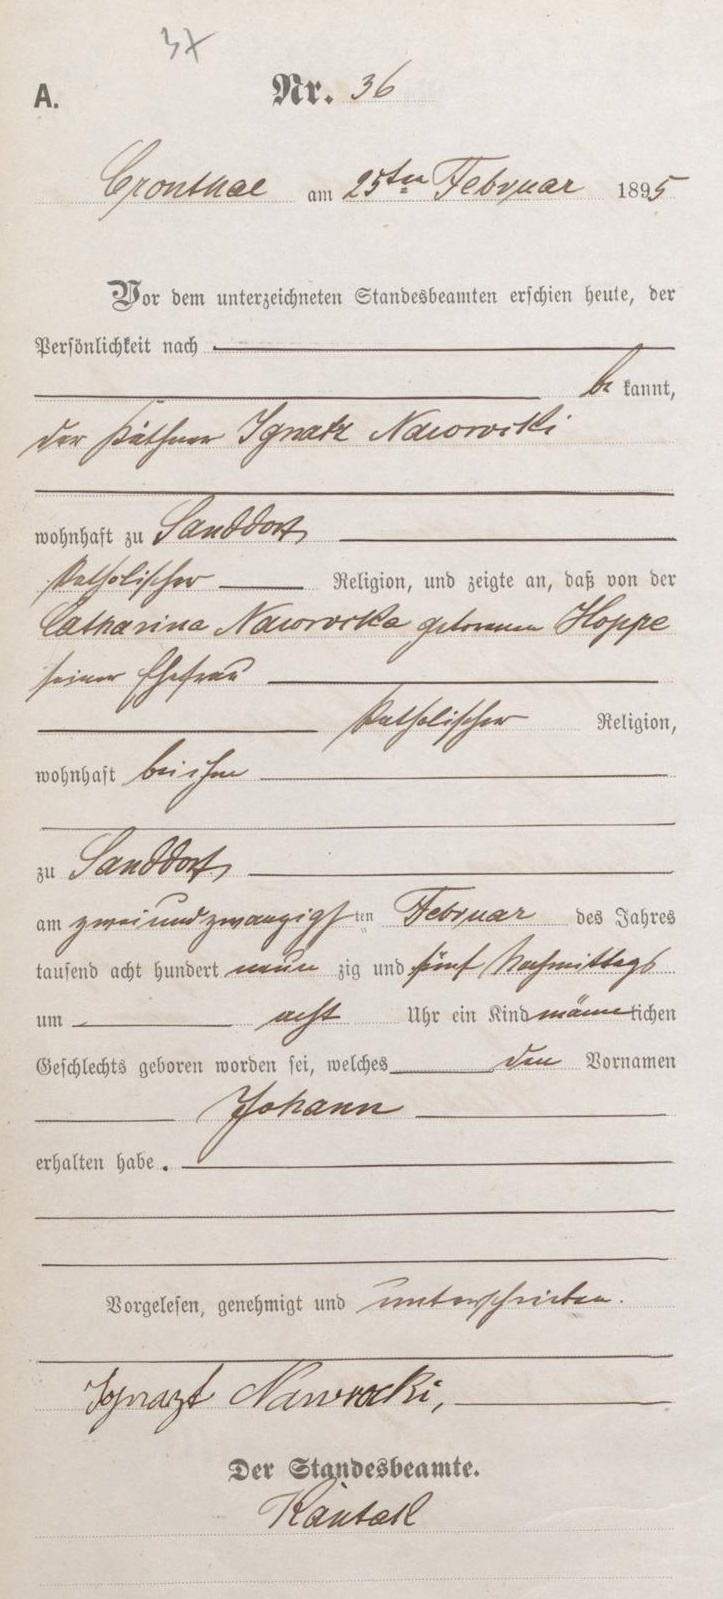 37
A.
Nr. 36
Cronthal am 25ten Februar 1895
Vor dem unterzeichneten Standesbeamten erschien heute, der
Persönlichkeit nach
be kannt,
der Käthner Ignatz Nawrocki
wohnhaft zu Sanddorf
katholischer Religion, und zeigte an, daß von der
Catharina Nawrocka geborenen Hoppe
seiner Ehefrau
katholischer Religion,
wohnhaft bei ihm
zu Sanddorf
am zweiundzwanzigsten Februar des Jahres
tausend acht hundert neun zig und fünf Nachmittags
um acht Uhr ein Kind männlichen
Geschlechts geboren worden sei, welches den Vornamen
Johann
erhalten habe.
Vorgelesen, genehmigt und unterschrieben.
Ignazt Nawrocki,
Der Standesbeamte.